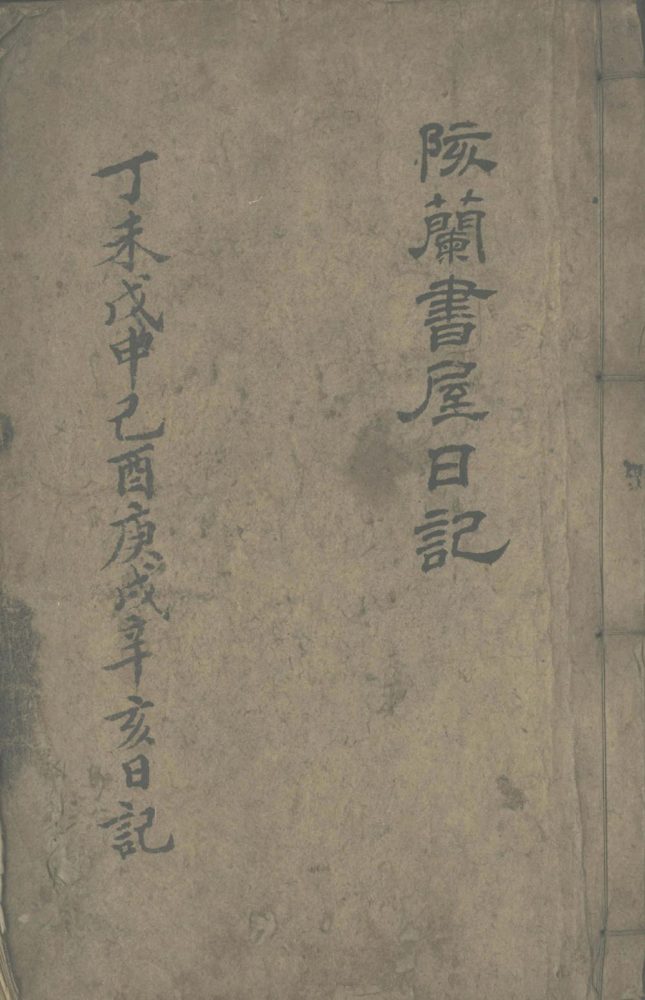 陔蘭書屋日記
丁未戊申己酉庚戌辛亥日記